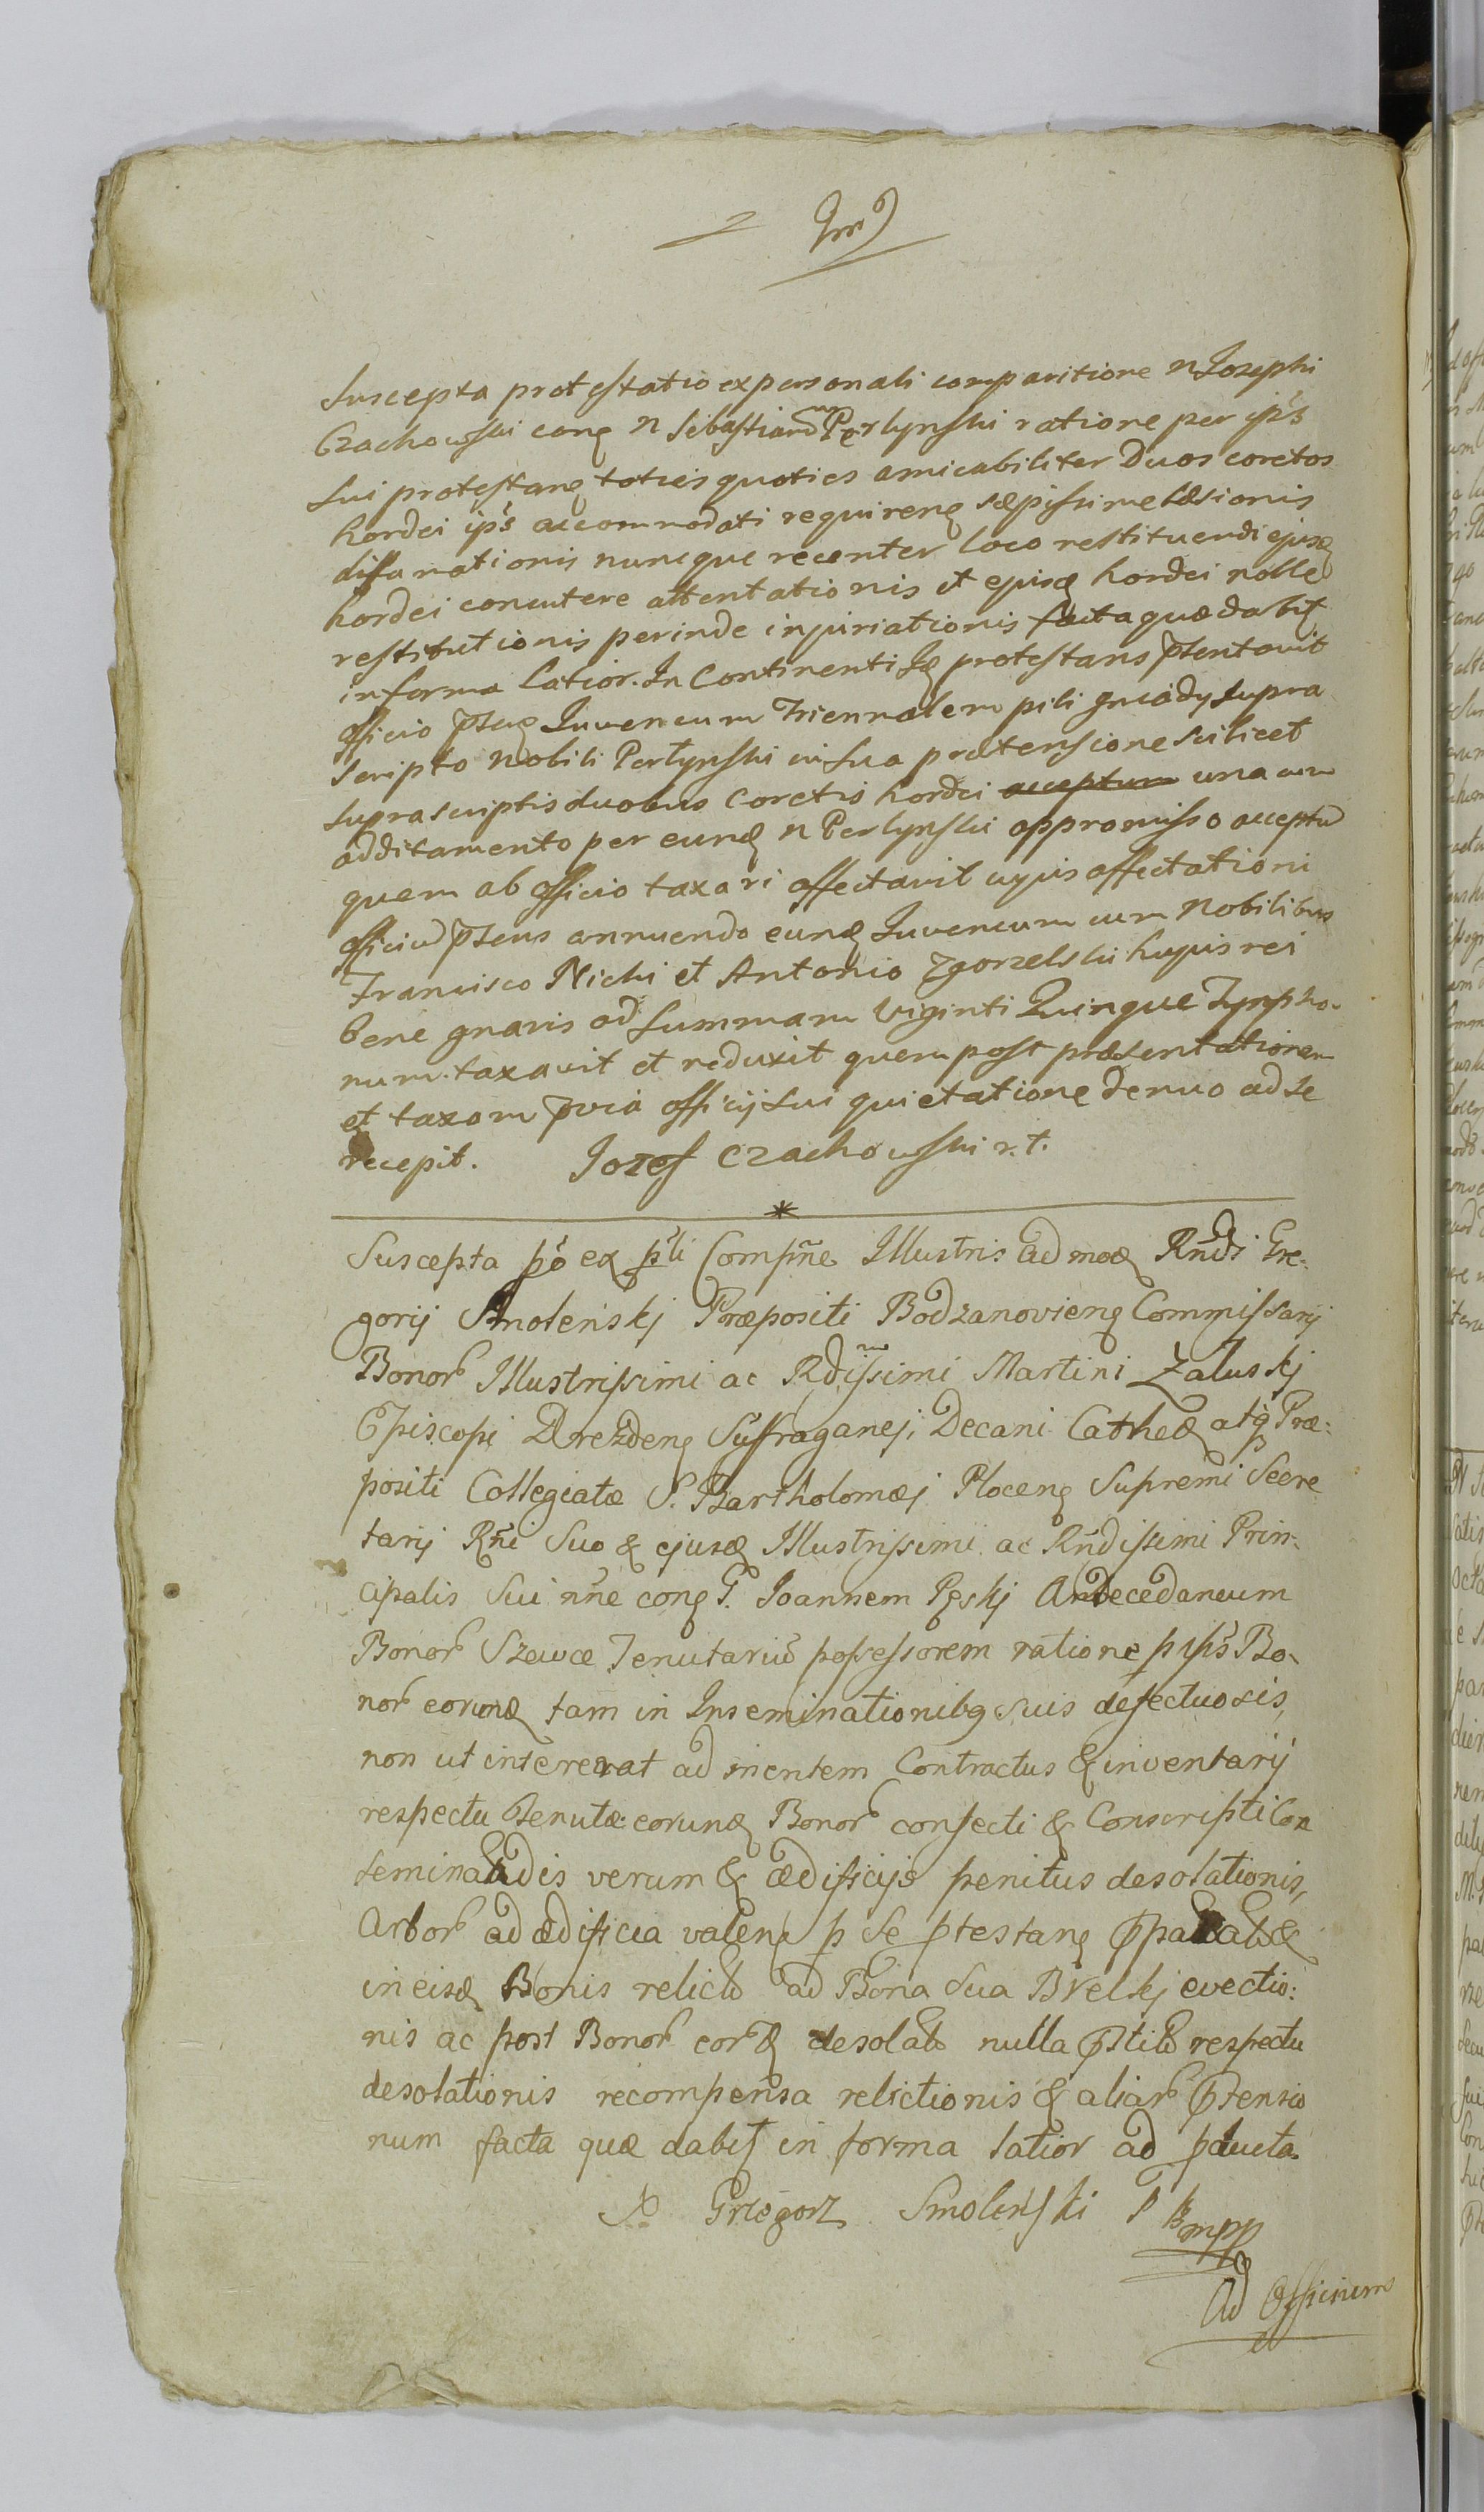 Suscepta protestatio ex personali comparitione n Josephi
Czachowski cong n Sebastianum Perlynski ratione per ips
sui protestang toties quoties amicabiliter Duos coretos
hordei ips accommodati requireng sæpissime læsionis
diffamationis nuncque recenter loco restituendi ejusd
hordei concutere attentationis et ejusd hordei nolle
restitutionis perinde injuriationis facta quæ dabit
in forma latior. In Continenti Id protestans pntavit
officio pntng Juvencum Triennalem pili gniady supra
scripto Nobili Perlynski in sua prætensione scilicet
suprascriptis duobus coretis hordei acceptum una cum
additamento per eund n Perlynski appromisso acceptu
quem ab officio taxari affectavit cujus affectationi
officiu pntns annuendo eund Juvencum cum Nobilibus
Francisco Nichi et Antonio Zgorzelski hujus rei
bene gnaris ad summam Viginti Quinque Tynpho-
num taxavit et reduxit quem post præsentationem
et taxam pvia officij sui quietatione denuo ad se
recepit. Jozef Czachowski r.t.
Suscepta po ex pli Compñe Illustris admod Rndi Gre-
gorij Smolenskj Præpositi Bodzanovieng Commissarij
Bonor Illustrissimi ac Rdissimi Martini Zaluskj
Episcopi Drezdeng Suffraganej, Decani Cathed atq Præ:
positi Collegiatæ S. Bartholomæj Ploceng Supremi Secre
tarij Rñi Suo & ejusd Illustrissimi ac Rndissimi Prin-
cipalis Sui nñe cong G. Joannem Pęskj Antecedaneum
Bonor Szewce Tenutariu possessorem ratione p ips Bo-
nor eorund tam in Inseminationibg suis defectuosis,
non ut intererat ad mentem Contractus & inventarij
respectu Tenutæ eorund Bonor confecti & Conscripti Con
seminandis verum & ædificijs penitus desolationis,
Arbor ad ædificia valeng p se ptestang
in eisd Bonis relict ad Bona sua Brelskj evectio:
nis ac post Bonor eord desolat nulla pstit respectu
desolationis recompensa relictionis & aliar ptensio
num facta quæ dabit in forma latior ad pducta.
X Grzegorz Smolenski P B mpp
Ad Officium